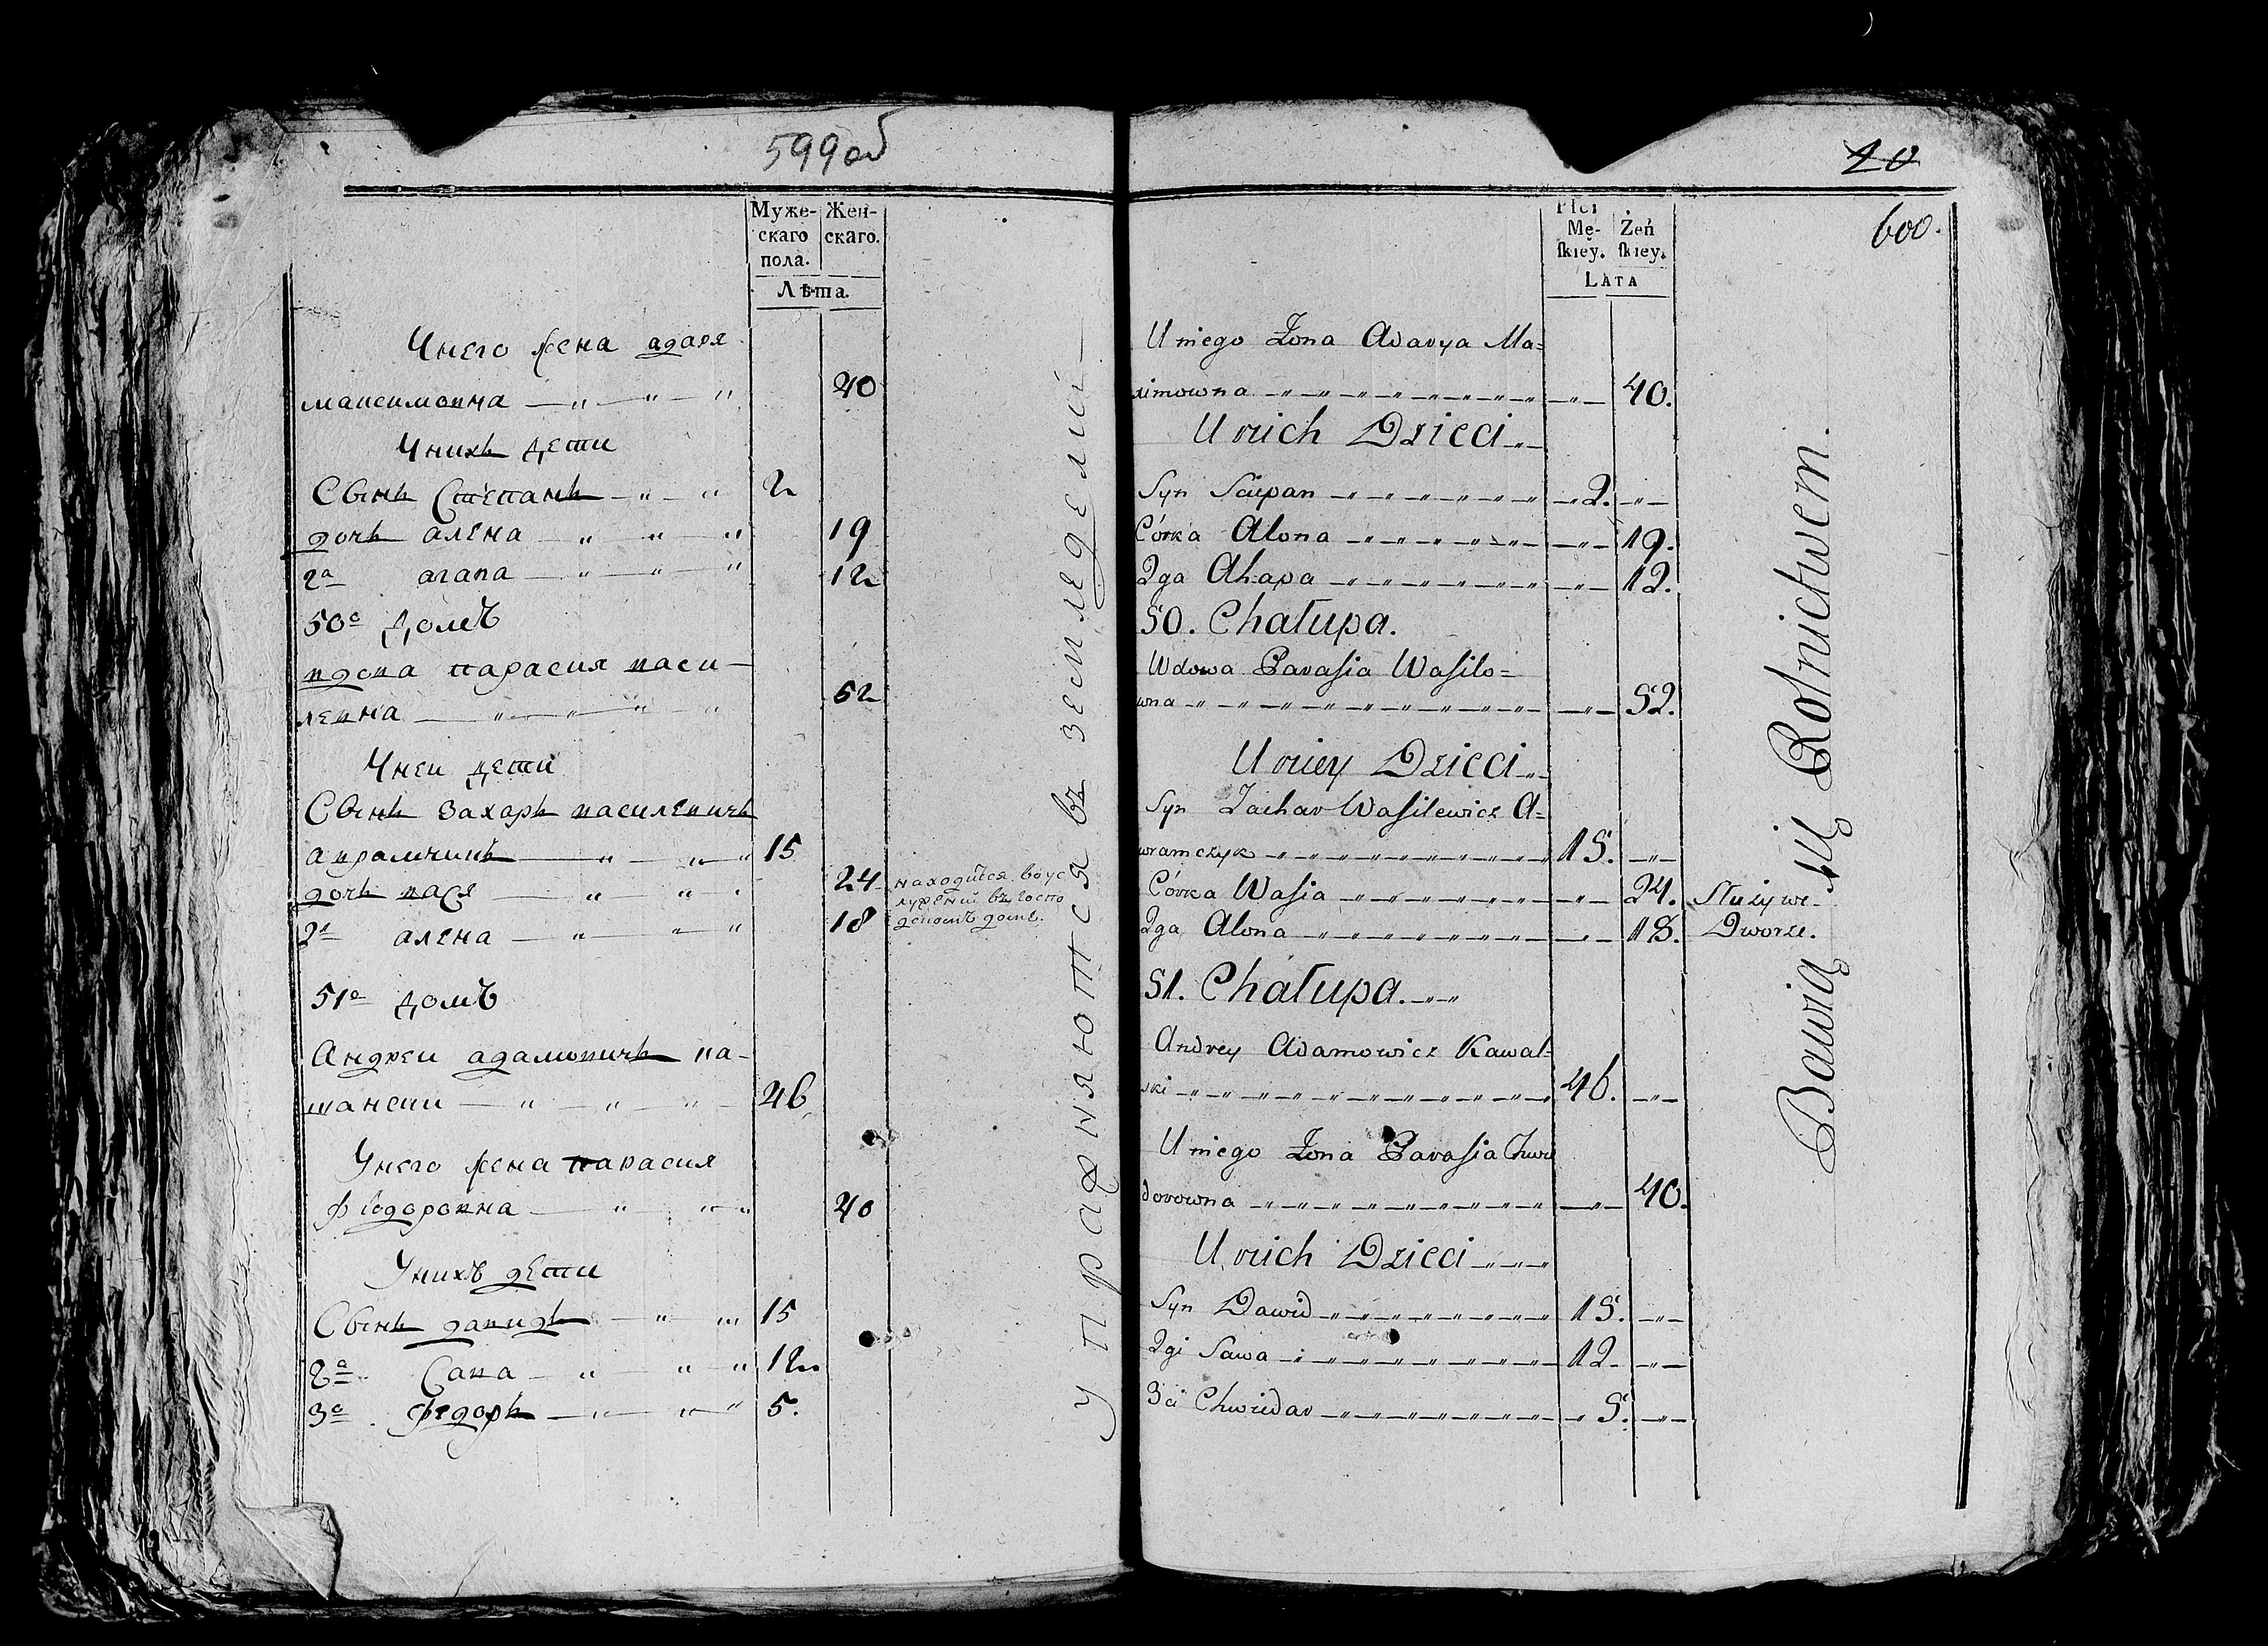 599об
Муже-
скаго
пола.
Жен-
скаго.
Лѣта.
Унего жена адаря
максимовна 40
Унихъ дети
Сынъ Степанъ 2
дочь алена 19
2а агапа 12
50е домъ
вдова парасия васи-
левна 52
Унеи дети
Сынъ Захаръ василевичъ
аврамчикъ 15
дочь вася 24 находится воус
лужении въ госпо
2я алена 18 дскомъ доме.
51е домъ
Андреи адамовичъ ка-
вальски 46
Унего жена парасия
фіодоровна 40
Унихъ дети
Сынъ давидъ 15
2а Сава 12
3а федоръ 5.
упражняются въ земледелии
20
600.
Płci
Mę-
skiey.
Żeń
skiey.
Lata
U niego Żona Adarya Ma=
ximowna 40.
U nich Dzieci
Syn Sciepan 2.
Córka Alona 19.
2ga Ahapa 12.
50. Chałupa.
Wdowa Parasia Wasilo=
wna 52.
U niey Dzieci
Syn Zachar Wasilewicz A=
wramczyk 15.
Córka Wasia 24. Służy we
2ga Alona 18. Dworze.
51. Chałupa.
Andrey Adamowicz Kawal=
ski 46.
U niego Żona Parasia Chwie
dorowna 40.
U nich Dzieci
Syn Dawid 15.
2gi Sawa 12.
3ci Chwiedar 5.
Bawią się Rolnictwem.